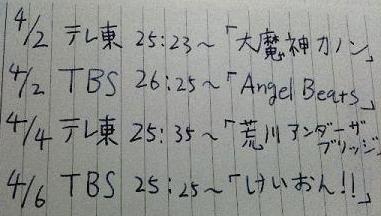 4/2 テレ東 25:23~「大魔神カノン」
4/2 TBS 26:25~「Angel Beats」
4/4 テレ東 25:35~「荒川アンダーザ
ブリッジ」
4/6 TBS 25:25~「けいおん!!」